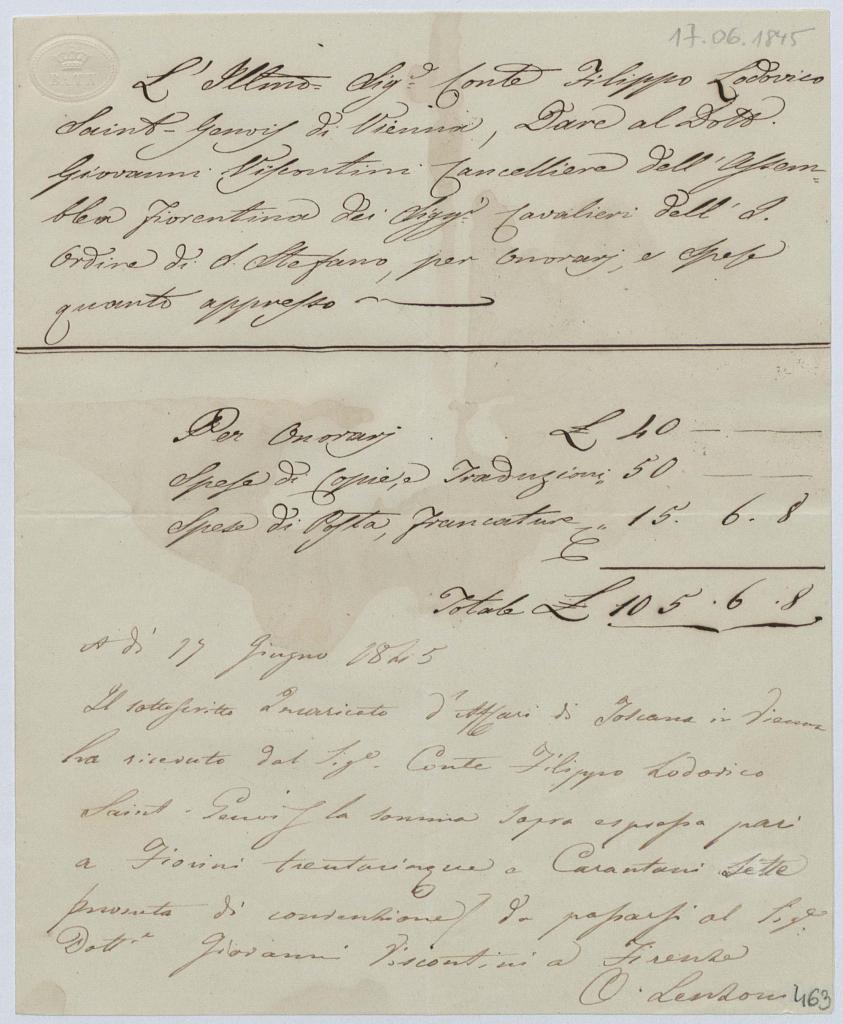 17.06.1845
BATH
L' Illmo= Sigr. Conte Filippo Lodovico
Saint-Genois di Vienna, Dare al Dott.
Giovanni Viscontini Cancelliere dell' Assem=
blea Fiorentina dei Sigg.i Cavalieri dell' I.
Ordine di S. Stefano, per Onorarj, e Spese
quanto appresso
Per Onorarj £ 40 — —
Spese di Copie, e Traduzioni „ 50 — —
Spese di Posta, Francature „ 15. 6. 8
Totale £ 105. 6. 8
A dì 17 Giugno 1845
Il sottoscritto Incaricato d'Affari di Toscana in Vienna
ha ricevuto dal Sigr. Conte Filippo Lodovico
Saint-Genois la somma sopra espressa pari
a Fiorini trentacinque e Carantani sette
di convenzione, da passarsi al Sigr.
Dott.r Giovanni Viscontini a Firenze
O. Lenzoni
463